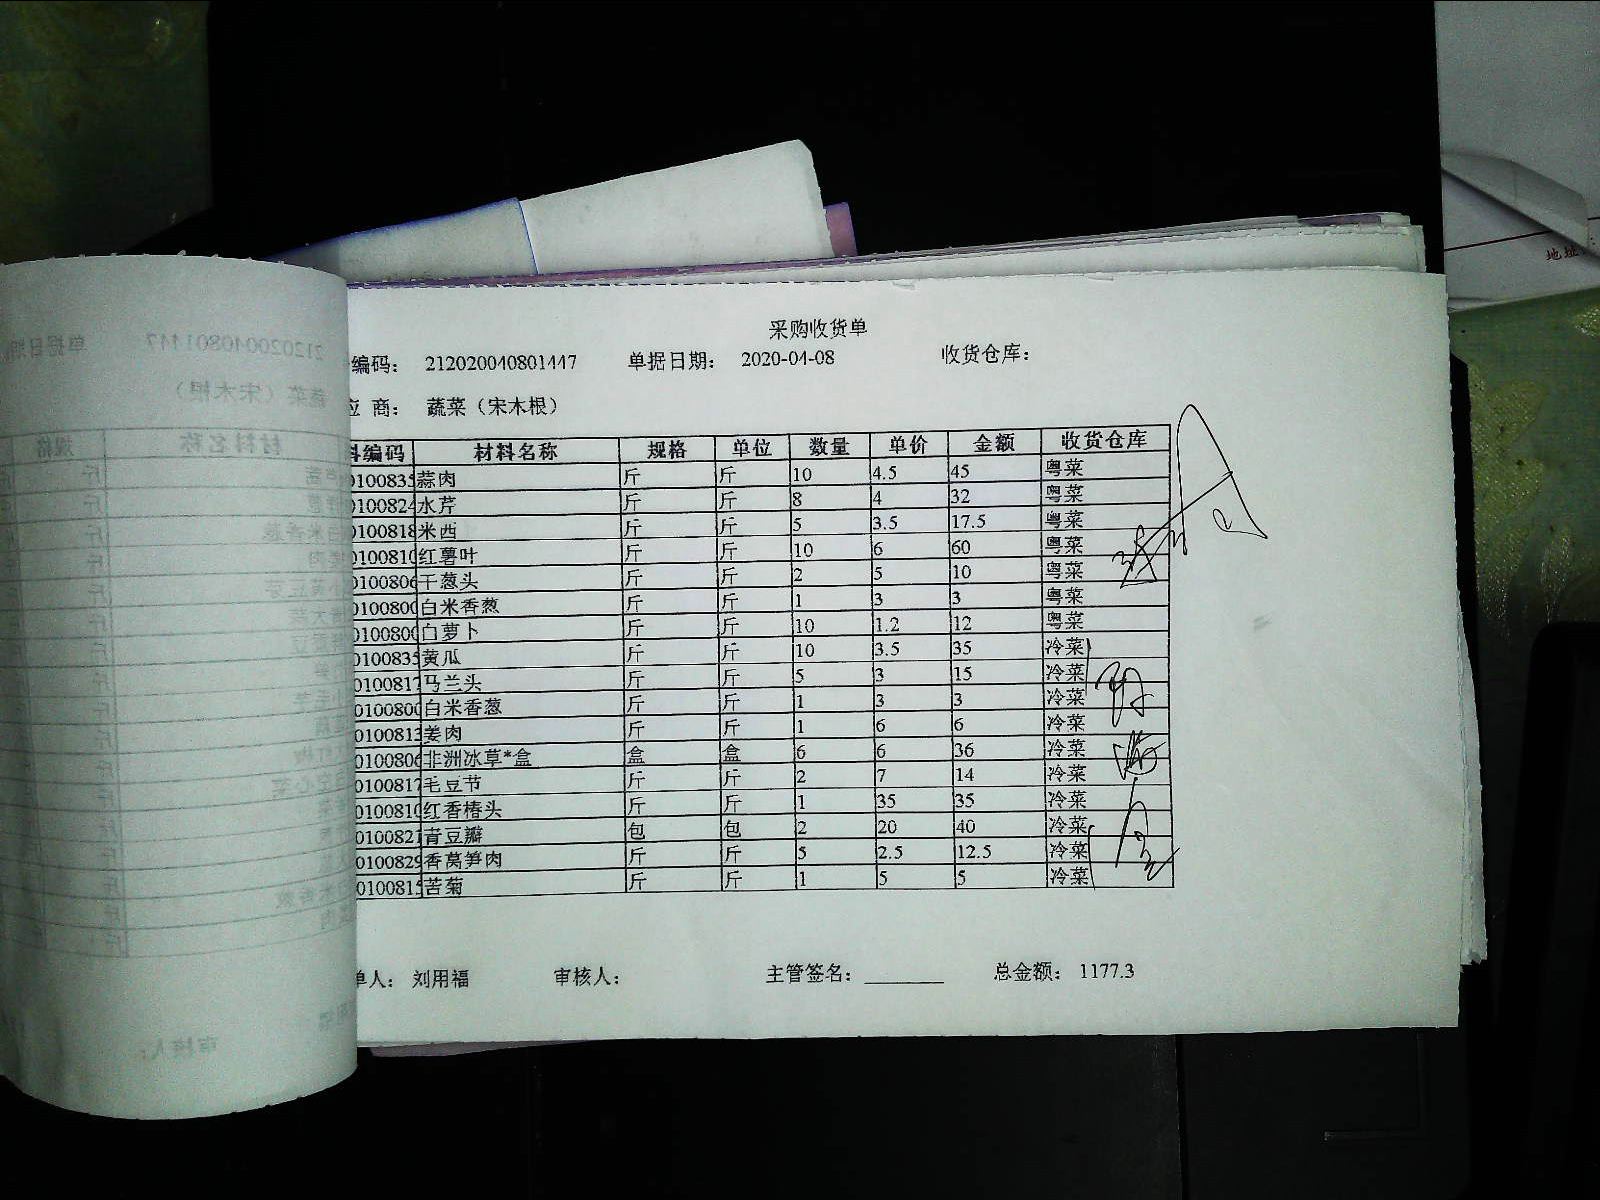 采购收货单
编码: 212020040801447 单据日期: 2020-04-08 收货仓库:
应 商: 蔬菜（宋木根）
料编码 材料名称 规格 单位 数量 单价 金额 收货仓库
0100835 蒜肉 斤 斤 10 4.5 45 粤菜
0100824 水芹 斤 斤 8 4 32 粤菜
0100818 米西 斤 斤 5 3.5 17.5 粤菜
0100810 红薯叶 斤 斤 10 6 60 粤菜
0100806 干葱头 斤 斤 2 5 10 粤菜
0100800 白米香葱 斤 斤 1 3 3 粤菜
0100800 白萝卜 斤 斤 10 1.2 12 粤菜
0100835 黄瓜 斤 斤 10 3.5 35 冷菜
0100817 马兰头 斤 斤 5 3 15 冷菜
0100800 白米香葱 斤 斤 1 3 3 冷菜
0100813 姜肉 斤 斤 1 6 6 冷菜
0100806 非洲冰草*盒 盒 盒 6 6 36 冷菜
0100817 毛豆节 斤 斤 2 7 14 冷菜
0100810 红香椿头 斤 斤 1 35 35 冷菜
0100821 青豆瓣 包 包 2 20 40 冷菜
0100829 香莴笋肉 斤 斤 5 2.5 12.5 冷菜
0100815 苦菊 斤 斤 1 5 5 冷菜
单人: 刘用福 审核人: 主管签名: ________ 总金额: 1177.3